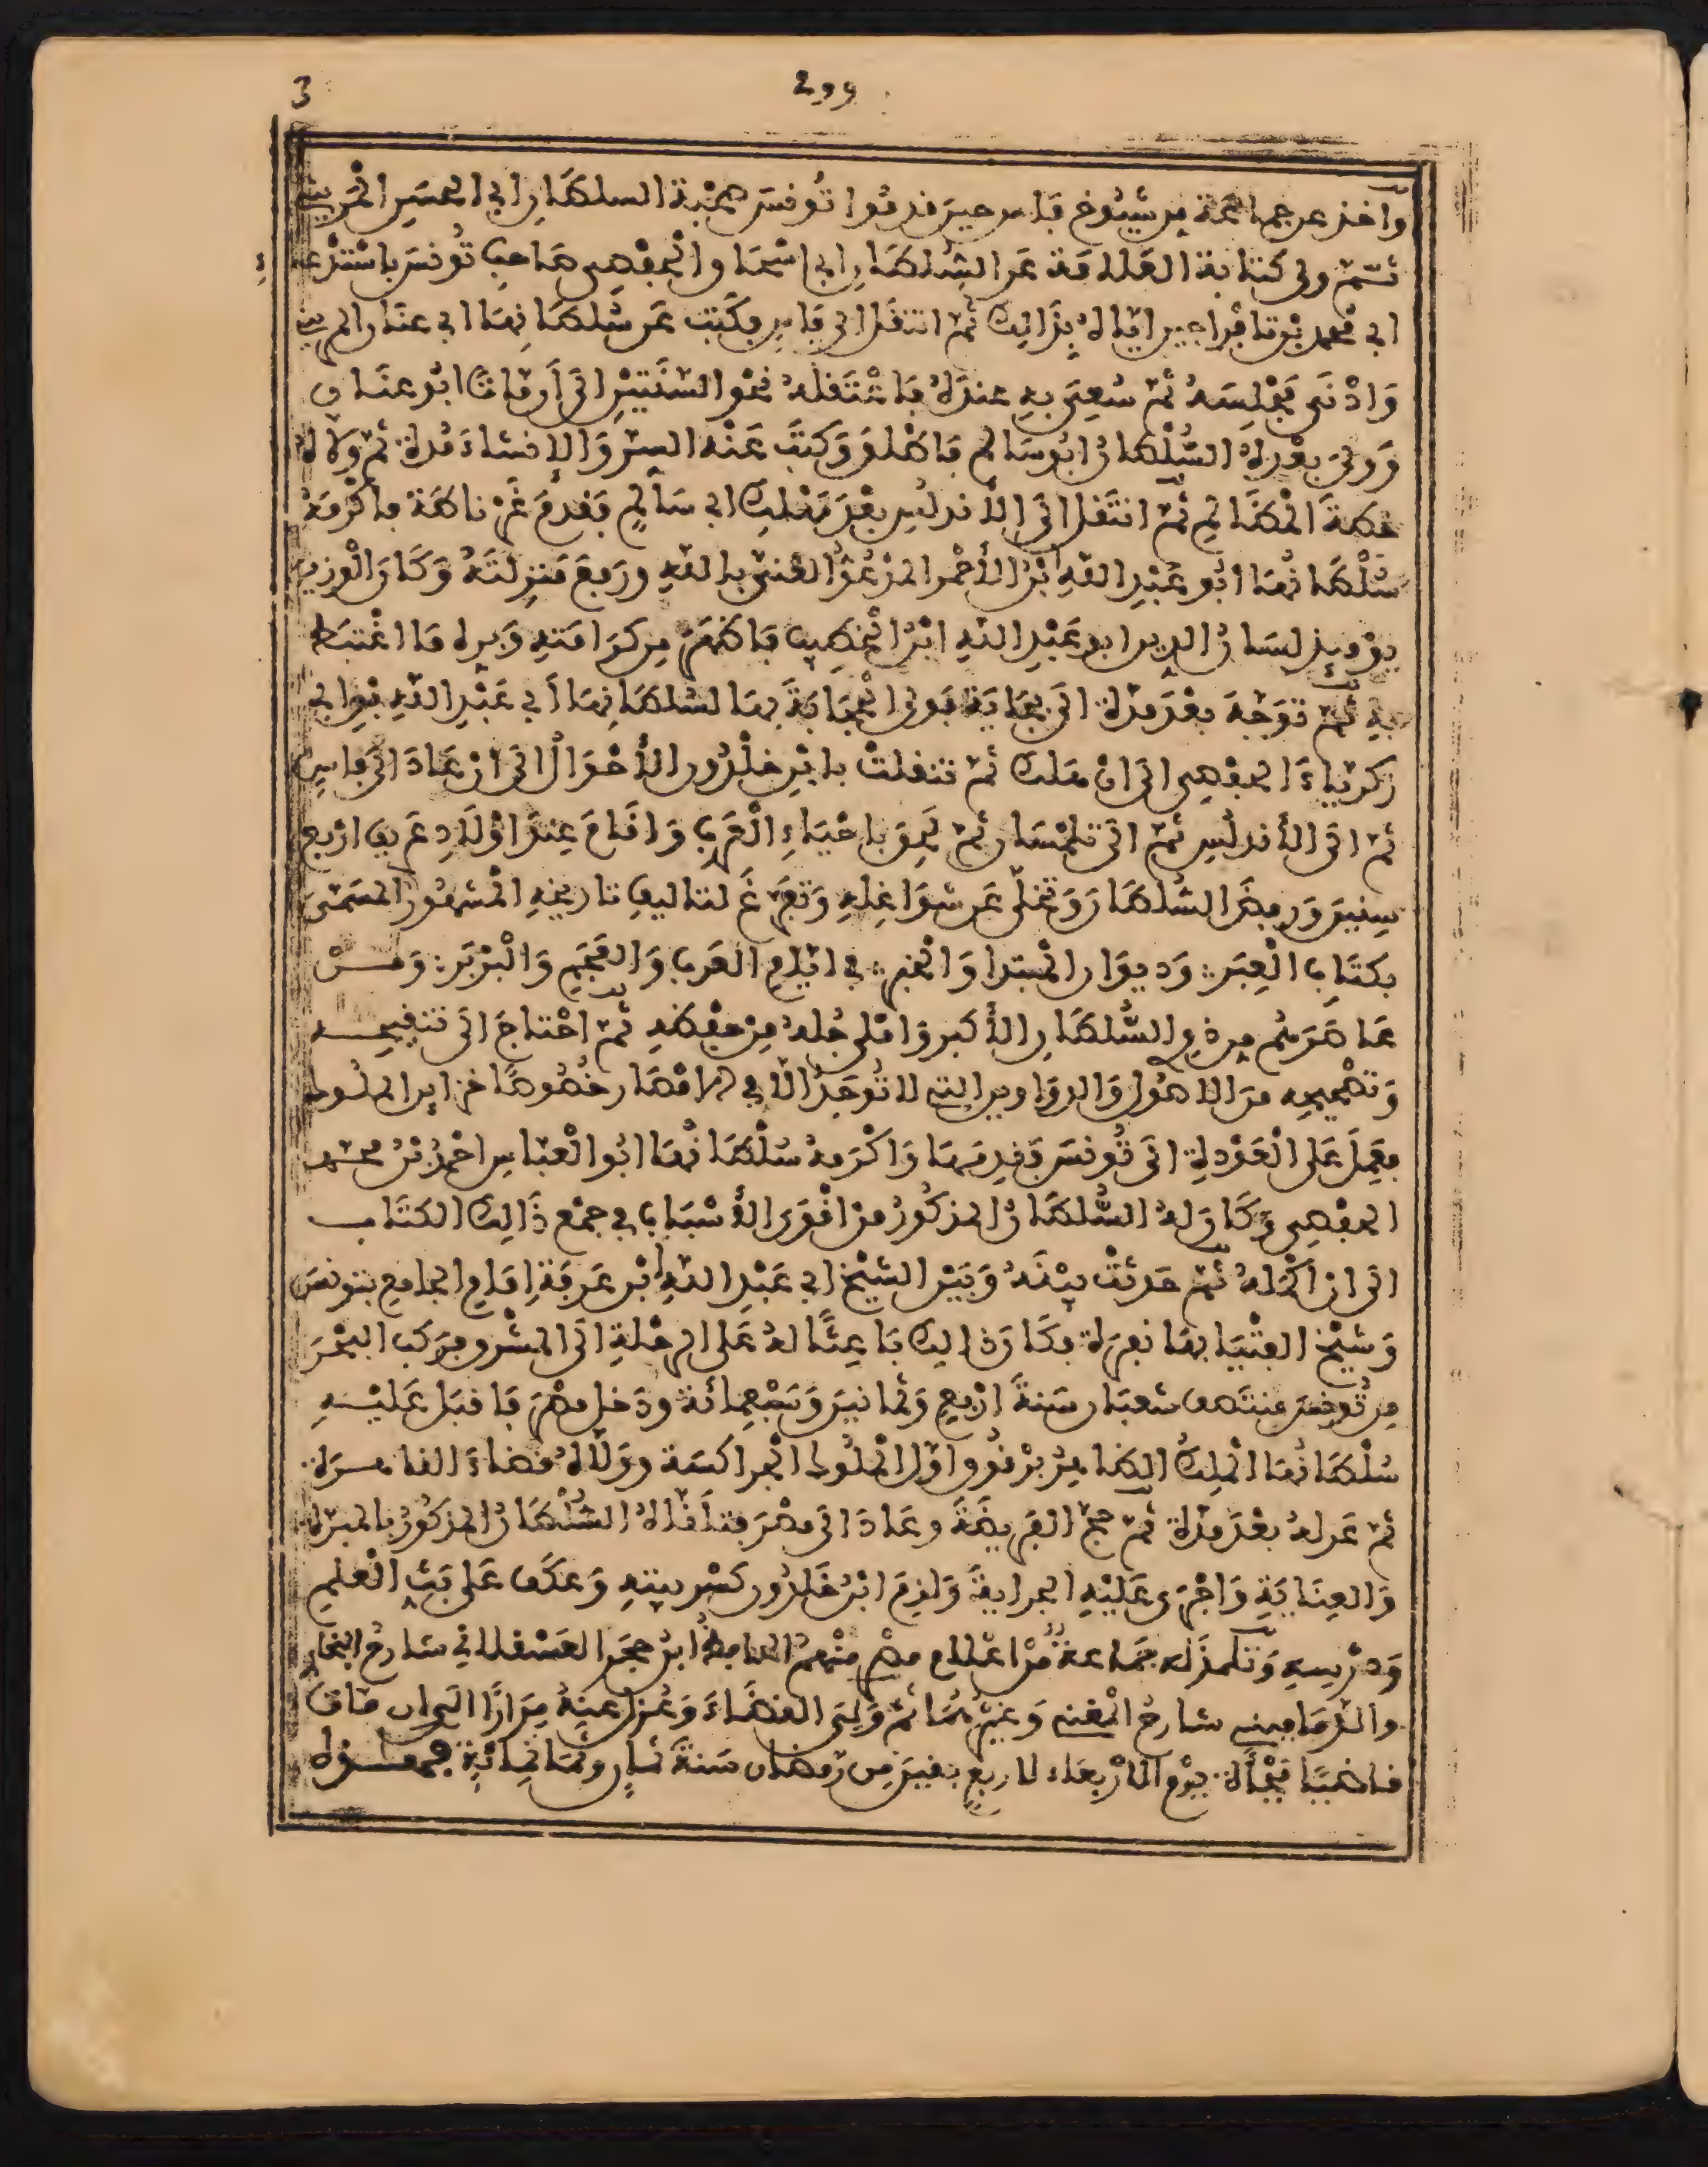 3 299
واخذ عن جماعة من شيوخ فاس حين قدموا تونس صحبة السلطان ابي الحسن المريني
ثم ولي كتابة العلامة عن السلطان ابي اسحاق الحفصي صاحب تونس باستدعاء
ابي محمد بن تافراجين اياه لذالك ثم انتقل الى فاس فكتب عن سلطانها ابي عنان المريني
وادنى مجلسه ثم سعي به عنده فاعتقله نحو السنتين الى ان مات ابو عنان
وولي بعده السلطان ابو سالم فاطلق وكتب عنه السر والانشاء مدة ثم ولاه
خطة المظالم ثم انتقل الى الأندلس بعد مهلك ابي سالم فقدم غرناطة فاكرمه
سلطانها ابو عبد الله ابن الأحمر المدعو الغني بالله ورفع منزلته وكان الوزير
يومئذ لسان الدين ابو عبد الله ابن الخطيب فاظهر من كرامته وبره ما اغتبط
به ثم توجه بعد مدة الى بجاية فولي الحجابة بها لسلطانها أبي عبد الله بن ابي
زكرياء الحفصي الى ان هلك ثم تنقلت بابن خلدون الأحوال الى ان عاد الى فاس
ثم الى الأندلس ثم الى تلمسان ثم لحق باحياء العرب واقام عند اولاد عريف اربع
سنين ورفض السلطان وتخلى عن شواغله وتفرغ لتاليف تاريخه المشهور المسمى
بكتاب العبر: وديوان المبتدا والخبر: في ايام العرب والعجم والبربر: ومن
عاصرهم من ذوي السلطان الأكبر واملى جله من حفظه ثم احتاج الى تنقيحه
وتصحيحه من الاصول والدواوين التي لا توجد الا في الامصار خصوصا خزاين الملوك
فعمل على العودة الى تونس فقدمها واكرمه سلطانها ابو العباس احمد بن محمد
الحفصي وكان له السلطان المذكور من اقوى الأسباب في جمع ذالك الكتاب
الى ان أكمله ثم حدثت بينه وبين الشيخ ابي عبد الله ابن عرفة إمام الجامع بتونس
وشيخ الفتيا بها نفرة فكان ذالك باعثا له على الرحلة الى المشرق فركب البحر
من تونس منتصف شعبان سنة اربع وثمانين وسبعمائة ودخل مصر فاقبل عليه
سلطانها الملك الظاهر برقوق اول الملوك الجراكسة وولاه قضاء القاهرة
ثم عزله بعد مدة ثم حج الفريضة وعاد الى مصر فتلقاه السلطان المذكور بالمبرة
والعناية واجرى عليه الجراية ولزم ابن خلدون كسر بيته وعكف على بث العلم
وتدريسه وتلمذ له جماعة من اعلام مصر منهم الحافظ ابن حجر العسقلاني شارح البخاري
والدماميني شارح المغني وغيرهما ثم ولي القضاء وعزل عنه مرارا الى ان مات
قاضيا فجأة يوم الاربعاء لاربع بقين من رمضان سنة ثمان وثمانمائة